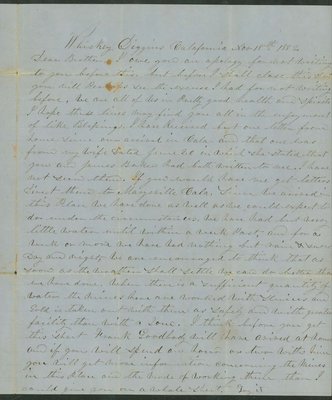 Whiskey Diggins California Nov 18th 185
Dear Brother I owe you an apology for not writing
to you before this but before I shall close this
you will perhaps see the excuse I had for not writing
before, We are all of us in pretty good health and Spirits
I hope these lines may find you all in the enjoyment
of like blessings. I have Received but one letter from
home since our arrival in Cala and that one was
from my wife date June 20 and she stated that
you and James had both written to me. I have
not seen them. If you would have me get letters
Direct them to Marysville Cala. Since we arrived in
this Place we have done as well as we could expect to
do under the circumstances. We have had but very
little water until within a week Past, and for a
week or more we have had nothing but rain & snow
day and night. We are encouraged to think that as
soon as the weather shall settle we can do better than
we have done. When there is a sufficient quantity of
water the mines here are worked with Sluices and
Gold is taken out with them as safely and with greater
facility than with a Tom. I think before you get
this Sheet Frank Goodbody will have arrived at home
and if you will spend an hour or two with him
you will get more information concerning the mines
in this Place and the mode of working them than I
could give you on a whole Sheet.